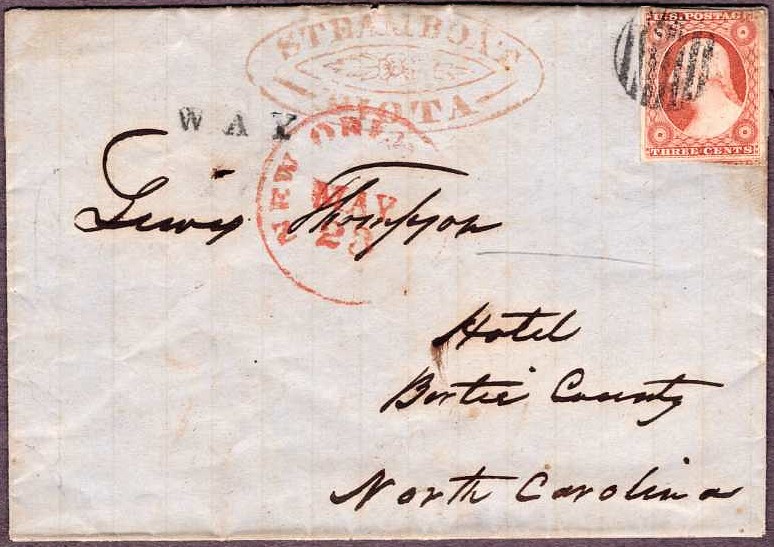 STEAMBOAT
U.S. POSTAGE
WAY
NEW ORL
MAY
23
THREE CENTS
Lewis Thompson
Hotel
Bertie County
North Carolina